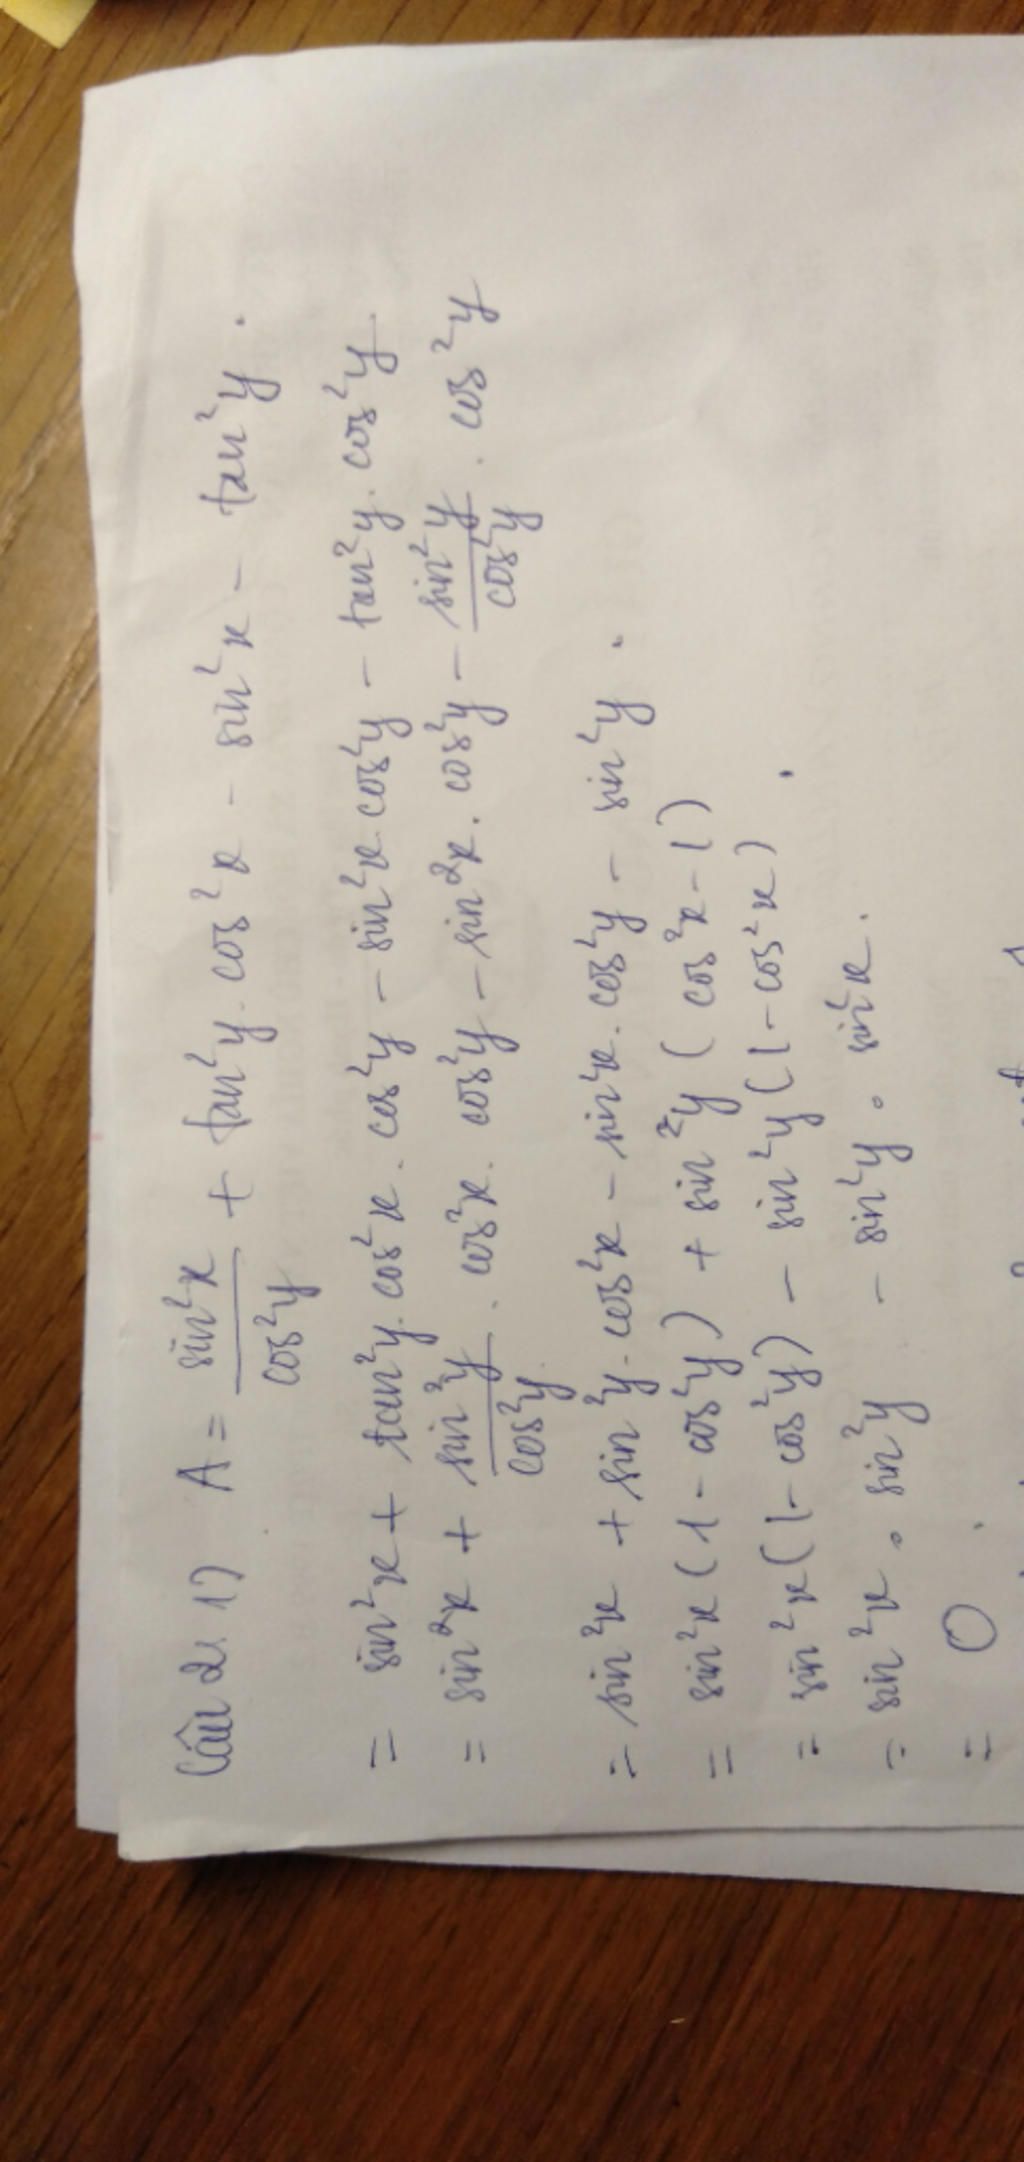 Câu 2: 1) A = sin²x/cos²y + tan²y . cos²x - sin²x - tan²y .
= sin²x + tan²y . cos²x . cos²y - sin²x . cos²y - tan²y . cos²y .
= sin²x + sin²y/cos²y . cos²x . cos²y - sin²x . cos²y - sin²y/cos²y . cos²y
= sin²x + sin²y . cos²x - sin²x . cos²y - sin²y .
= sin²x (1 - cos²y) + sin²y (cos²x - 1)
= sin²x (1 - cos²y) - sin²y (1 - cos²x) .
= sin²x . sin²y - sin²y . sin²x .
= 0 .